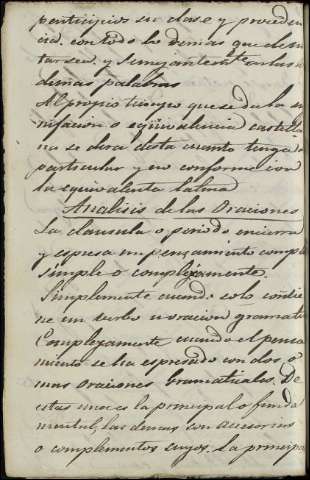 participios su clase y proceden
cia. con todo lo demas que deno
tar sea. y Semejante en las
demas palabras
Al propio tiempo que se da la sig
nificacion o equivalencia castella
na se dira desta cuanto tenga de
particular y no conforme con
la equivalente latina
Analisis de las Oraciones
La clausula o periodo encierra
y espresa un pensamiento comple
simple o complexamente.
Simplemente cuando solo contie
ne un verbo u oracion gramati
Complexamente cuando el pensa
miento se ha espresado con dos, o
mas oraciones Gramaticales. De
estas una es la principal o funda
mental, las demas son accesorias
o complementos suyos. La principa